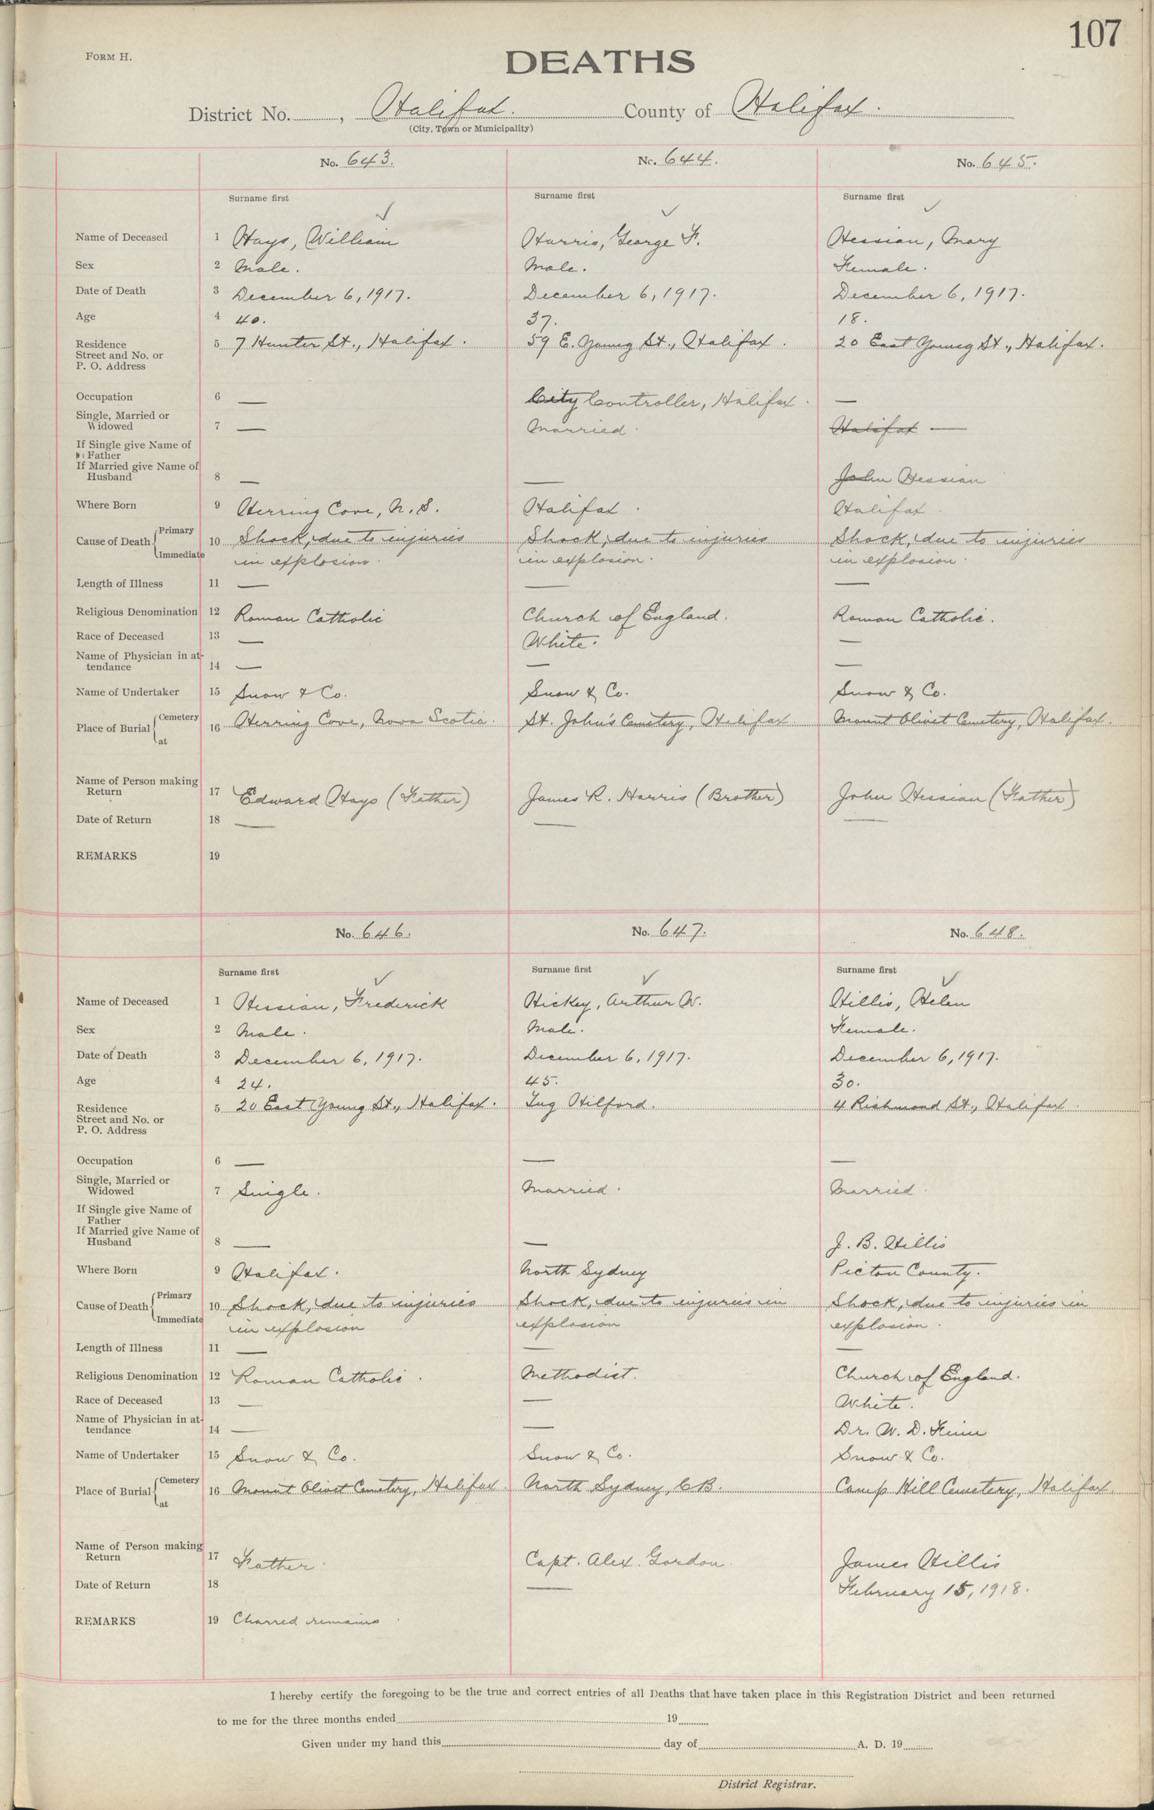 107
FORM H.
DEATHS
District No. , Halifax. County of Halifax.
(City, Town or Municipality)
No. 643. No. 644. No. 645.
Surname first Surname first Surname first
Name of Deceased 1 Hays, William Harris, George F. Hessian, Mary
Sex 2 Male. Male. Female.
Date of Death 3 December 6, 1917. December 6, 1917. December 6, 1917.
Age 4 40. 37. 18.
Residence 5 7 Hunter St., Halifax. 59 E. Young St., Halifax. 20 East Young St., Halifax.
Street and No. or
P. O. Address
Occupation 6 — City Controller, Halifax. —
Single, Married or
Widowed 7 — Married. Halifax —
If Single give Name of
Father
If Married give Name of
Husband 8 — — John Hessian
Where Born 9 Herring Cove, N. S. Halifax. Halifax.
Cause of Death Primary 10 Shock, due to injuries Shock, due to injuries Shock, due to injuries
Immediate in explosion. in explosion. in explosion.
Length of Illness 11 — — —
Religious Denomination 12 Roman Catholic Church of England. Roman Catholic.
Race of Deceased 13 — White. —
Name of Physician in at-
tendance 14 — — —
Name of Undertaker 15 Snow & Co. Snow & Co. Snow & Co.
Place of Burial Cemetery 16 Herring Cove, Nova Scotia. St. John's Cemetery, Halifax Mount Olivet Cemetery, Halifax.
at
Name of Person making
Return 17 Edward Hays (Father) James R. Harris (Brother) John Hessian (Father)
Date of Return 18 — — —
REMARKS 19
No. 646. No. 647. No. 648.
Surname first Surname first Surname first
Name of Deceased 1 Hessian, Frederick Hickey, Arthur W. Hillis, Helen
Sex 2 Male. Male. Female.
Date of Death 3 December 6, 1917. December 6, 1917. December 6, 1917.
Age 4 24. 45. 30.
Residence 5 20 East Young St., Halifax. Tug Hilford. 4 Richmond St., Halifax.
Street and No. or
P. O. Address
Occupation 6 — — —
Single, Married or
Widowed 7 Single. Married. Married.
If Single give Name of
Father
If Married give Name of
Husband 8 — — J. B. Hillis
Where Born 9 Halifax. North Sydney Pictou County.
Cause of Death Primary 10 Shock, due to injuries Shock, due to injuries in Shock, due to injuries in
Immediate in explosion explosion explosion.
Length of Illness 11 — — —
Religious Denomination 12 Roman Catholic. Methodist. Church of England.
Race of Deceased 13 — — White.
Name of Physician in at-
tendance 14 — — Dr. W. D. Finn
Name of Undertaker 15 Snow & Co. Snow & Co. Snow & Co.
Place of Burial Cemetery 16 Mount Olivet Cemetery, Halifax. North Sydney, C.B. Camp Hill Cemetery, Halifax.
at
Name of Person making
Return 17 Father. Capt. Alex. Gordon. James Hillis
Date of Return 18 — February 15, 1918.
REMARKS 19 Charred remains.
I hereby certify the foregoing to be the true and correct entries of all Deaths that have taken place in this Registration District and been returned
to me for the three months ended 19
Given under my hand this day of A. D. 19
District Registrar.